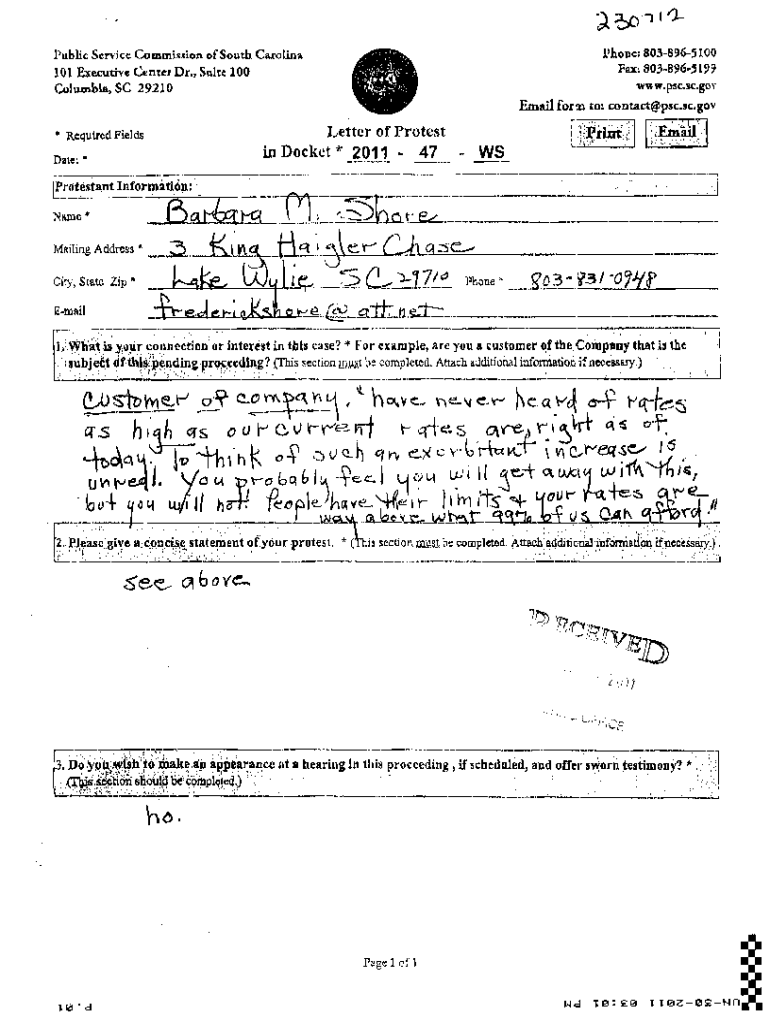 230712
Public Service Commission of South Carolina
101 Executive Center Dr., Suite 100
Columbia, SC 29210
Phone: 803-896-5100
Fax: 803-896-5199
www.psc.sc.gov
Email form to: contact@psc.sc.gov
* Required Fields
Letter of Protest
Print Email
Date: *
in Docket * 2011 - 47 - WS
Protestant Information:
Name * Barbara M. Shore
Mailing Address * 3 King Haigler Chase
City, State Zip * Lake Wylie SC 29710 Phone * 803-831-0948
E-mail frederickshore@att.net
1. What is your connection or interest in this case? * For example, are you a customer of the Company that is the
subject of this pending proceeding? (This section must be completed. Attach additional information if necessary.)
Customer of company. "have never heard of rates
as high as our current rates are, right as of
today. To think of such an exorbitant increase is
unreal. You probably feel you will get away with this,
but you will not! People have their limits & your rates are
way above what 99% of us can afford."
2. Please give a concise statement of your protest. * (This section must be completed. Attach additional information if necessary.)
see above
RECEIVED
2011
OFFICE
3. Do you wish to make an appearance at a hearing in this proceeding , if scheduled, and offer sworn testimony? *
(This section should be completed.)
no.
Page 1 of 1
P.01
UN-30-2011 03:01 PM